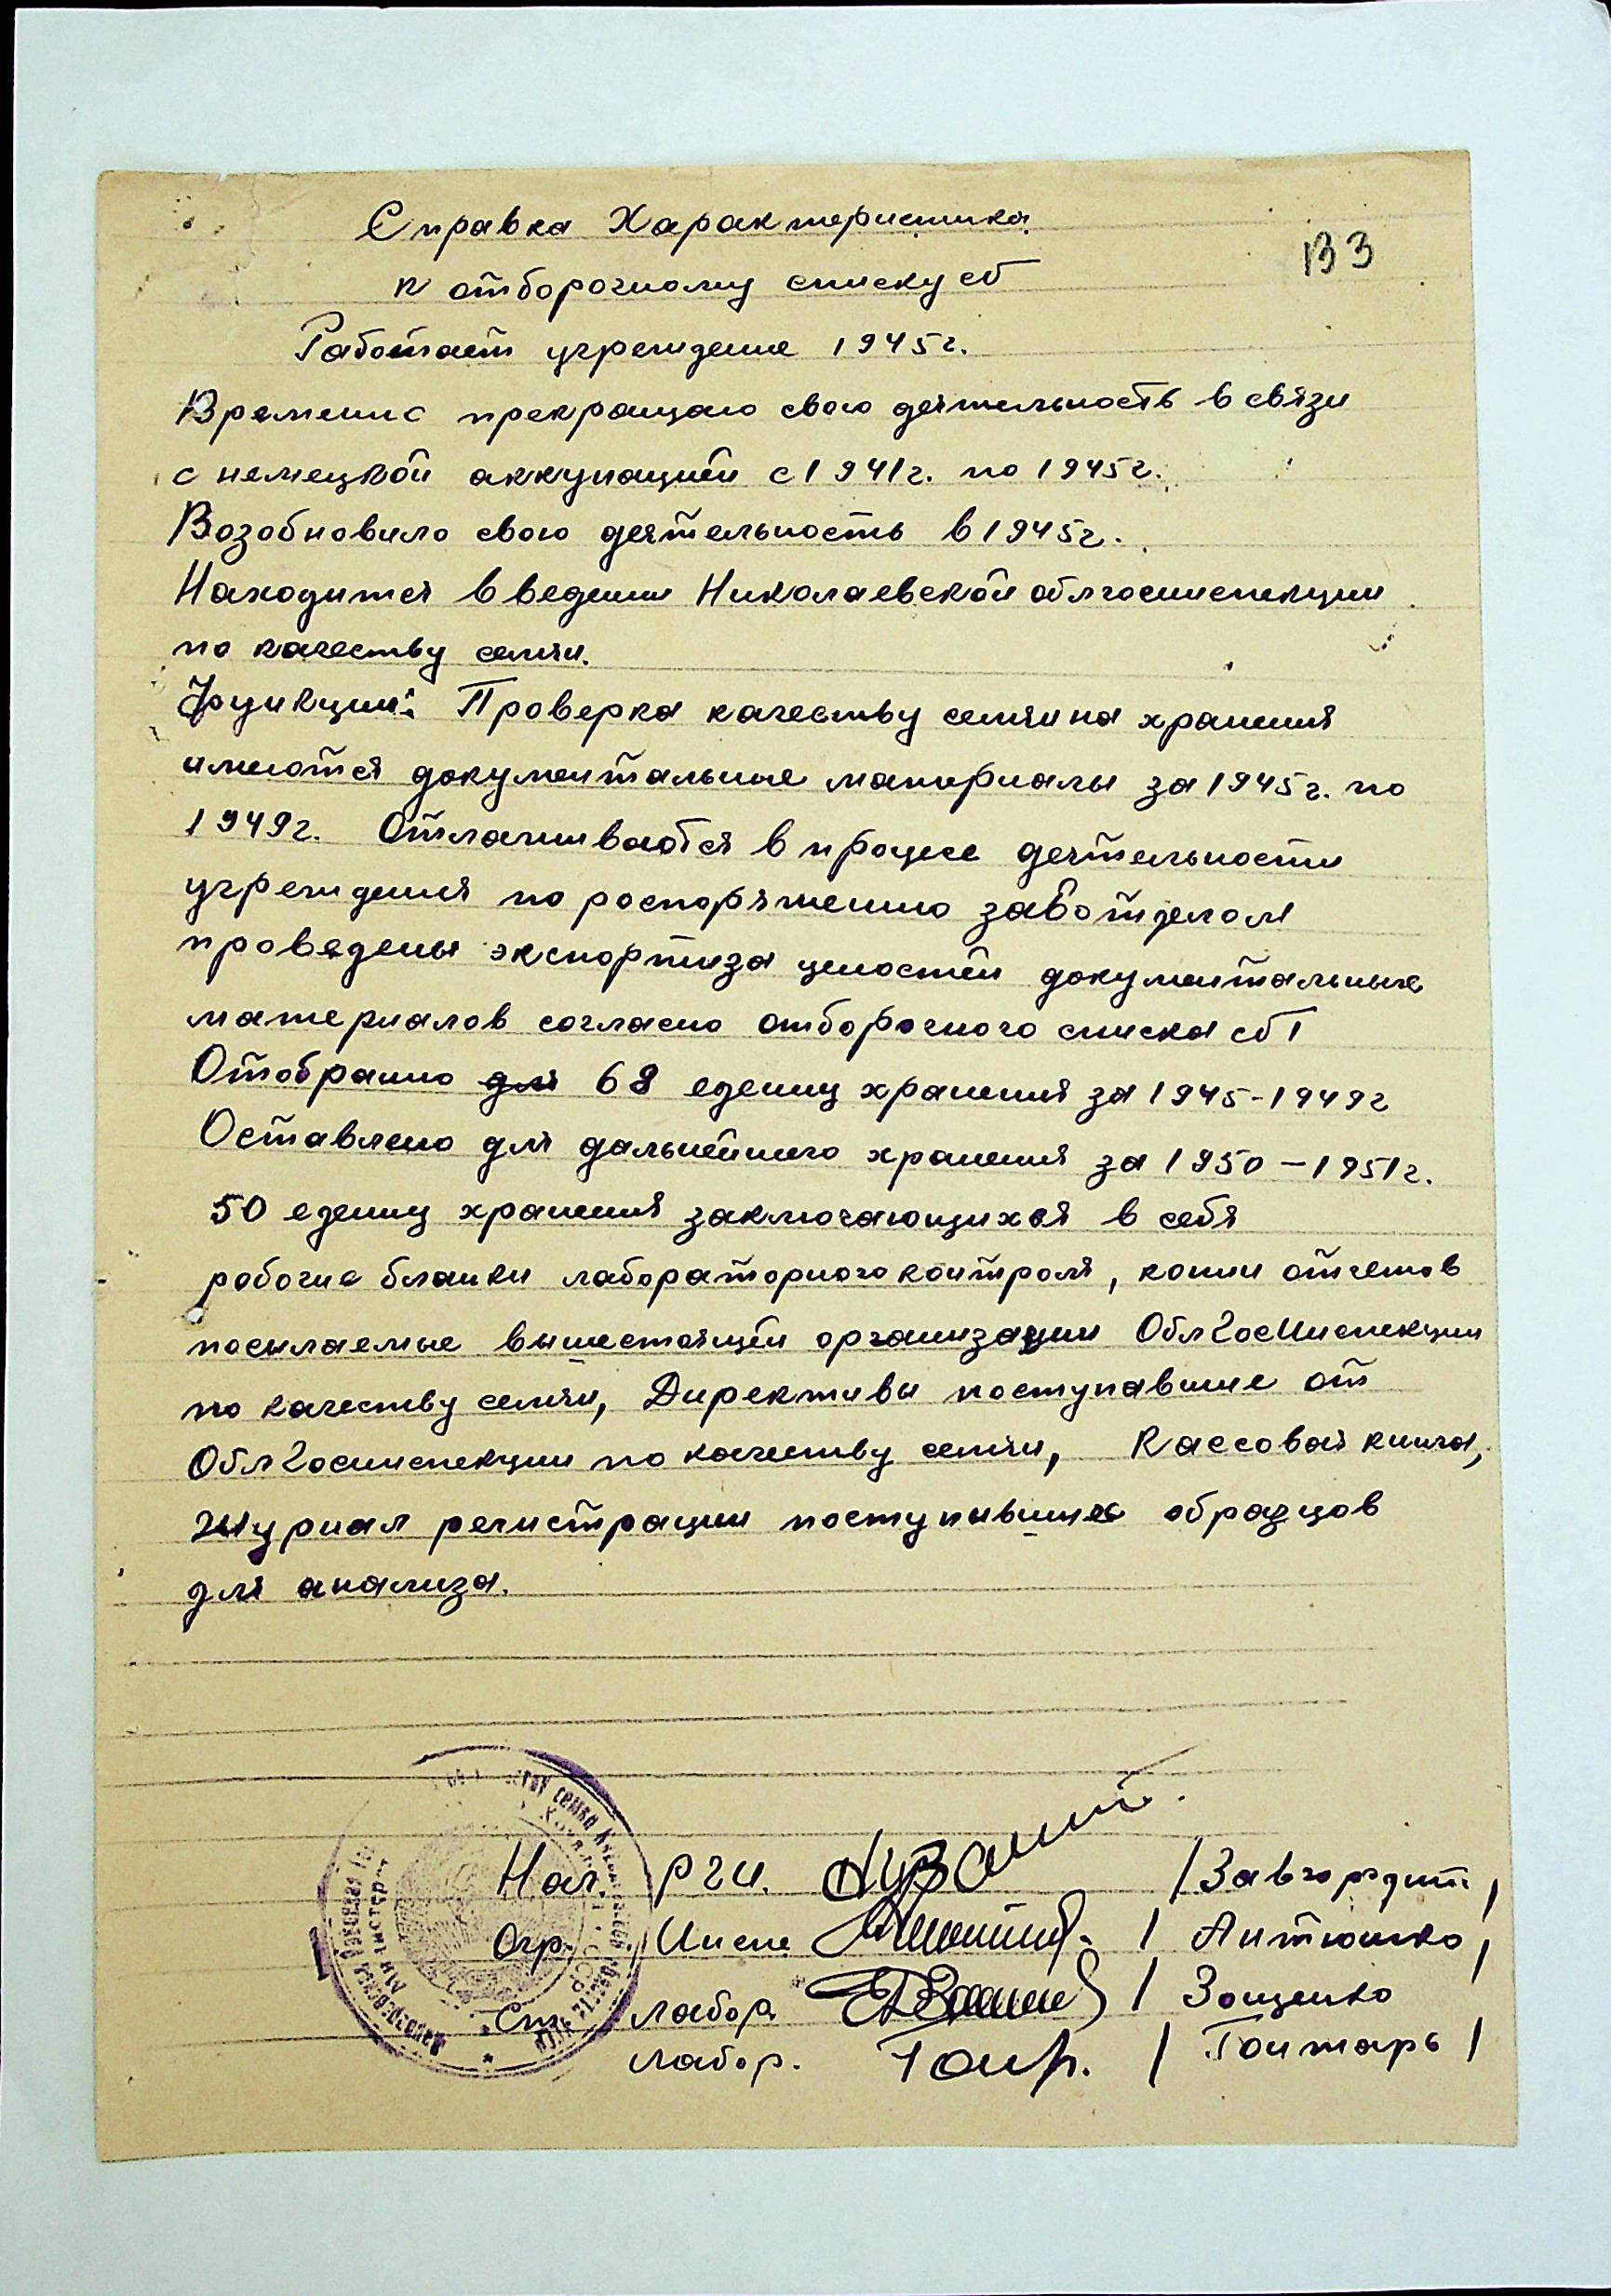 133
Справка Характеристика
к отборочному списку сб
Работает учреждение 1945г.
Времено прекращаю свою деятельность в связи
с немецкой аккупацией с 1941г. по 1945г.
Возобновило свою деятельность в 1945г.
Находится в ведении Николаевской облгосинспекции
по качеству семян.
Функции: Проверка качеству семян на хранения
имеются документальные материалы за 1945г. по
1949г. Отлаживаются в процесе деятельности
учреждения по роспоряжению зав отделом
проведены экспортиза ценостей документальные
материалов согласно отборочного списка сб 1
Отобранно для 68 едениц хранения за 1945-1949г
Оставлено для дальнейшего хранения за 1950-1951г.
50 едениц хранения заключающихся в себя
робочие бланки лабораторного контроля, копии отчетов
посылаемые вышестоящей организации ОблГосИнспекции
по качеству семян, Директивы поступавшие от
ОблГосинспекции по качеству семян, Кассовая книга,
Журнал регистрации поступивших образцов
для анализа.
Нач. РГИ. /Завгородит/
Агр. Инспе / Антюшко/
Ст. лабор / Зощенко
лабор. Гонр. / Гонтарь /